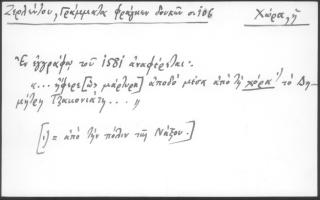 Ζερλέντου, Γράμματα Φράγκων δουκῶν σ. 106
Χώρα, ἡ
Ἐν ἐγγράφῳ τοῦ 1581 ἀναφέρεται:
«... ἤφερε [ὡς μάρτυρα] ἀποδὸ μέσα ἀπὸ τὴ χόρα¹) τὸ Δη-
μήτρη Τζακονιάτη... »
[1) = ἀπὸ τὴν πόλιν τῆς Νάξου.]